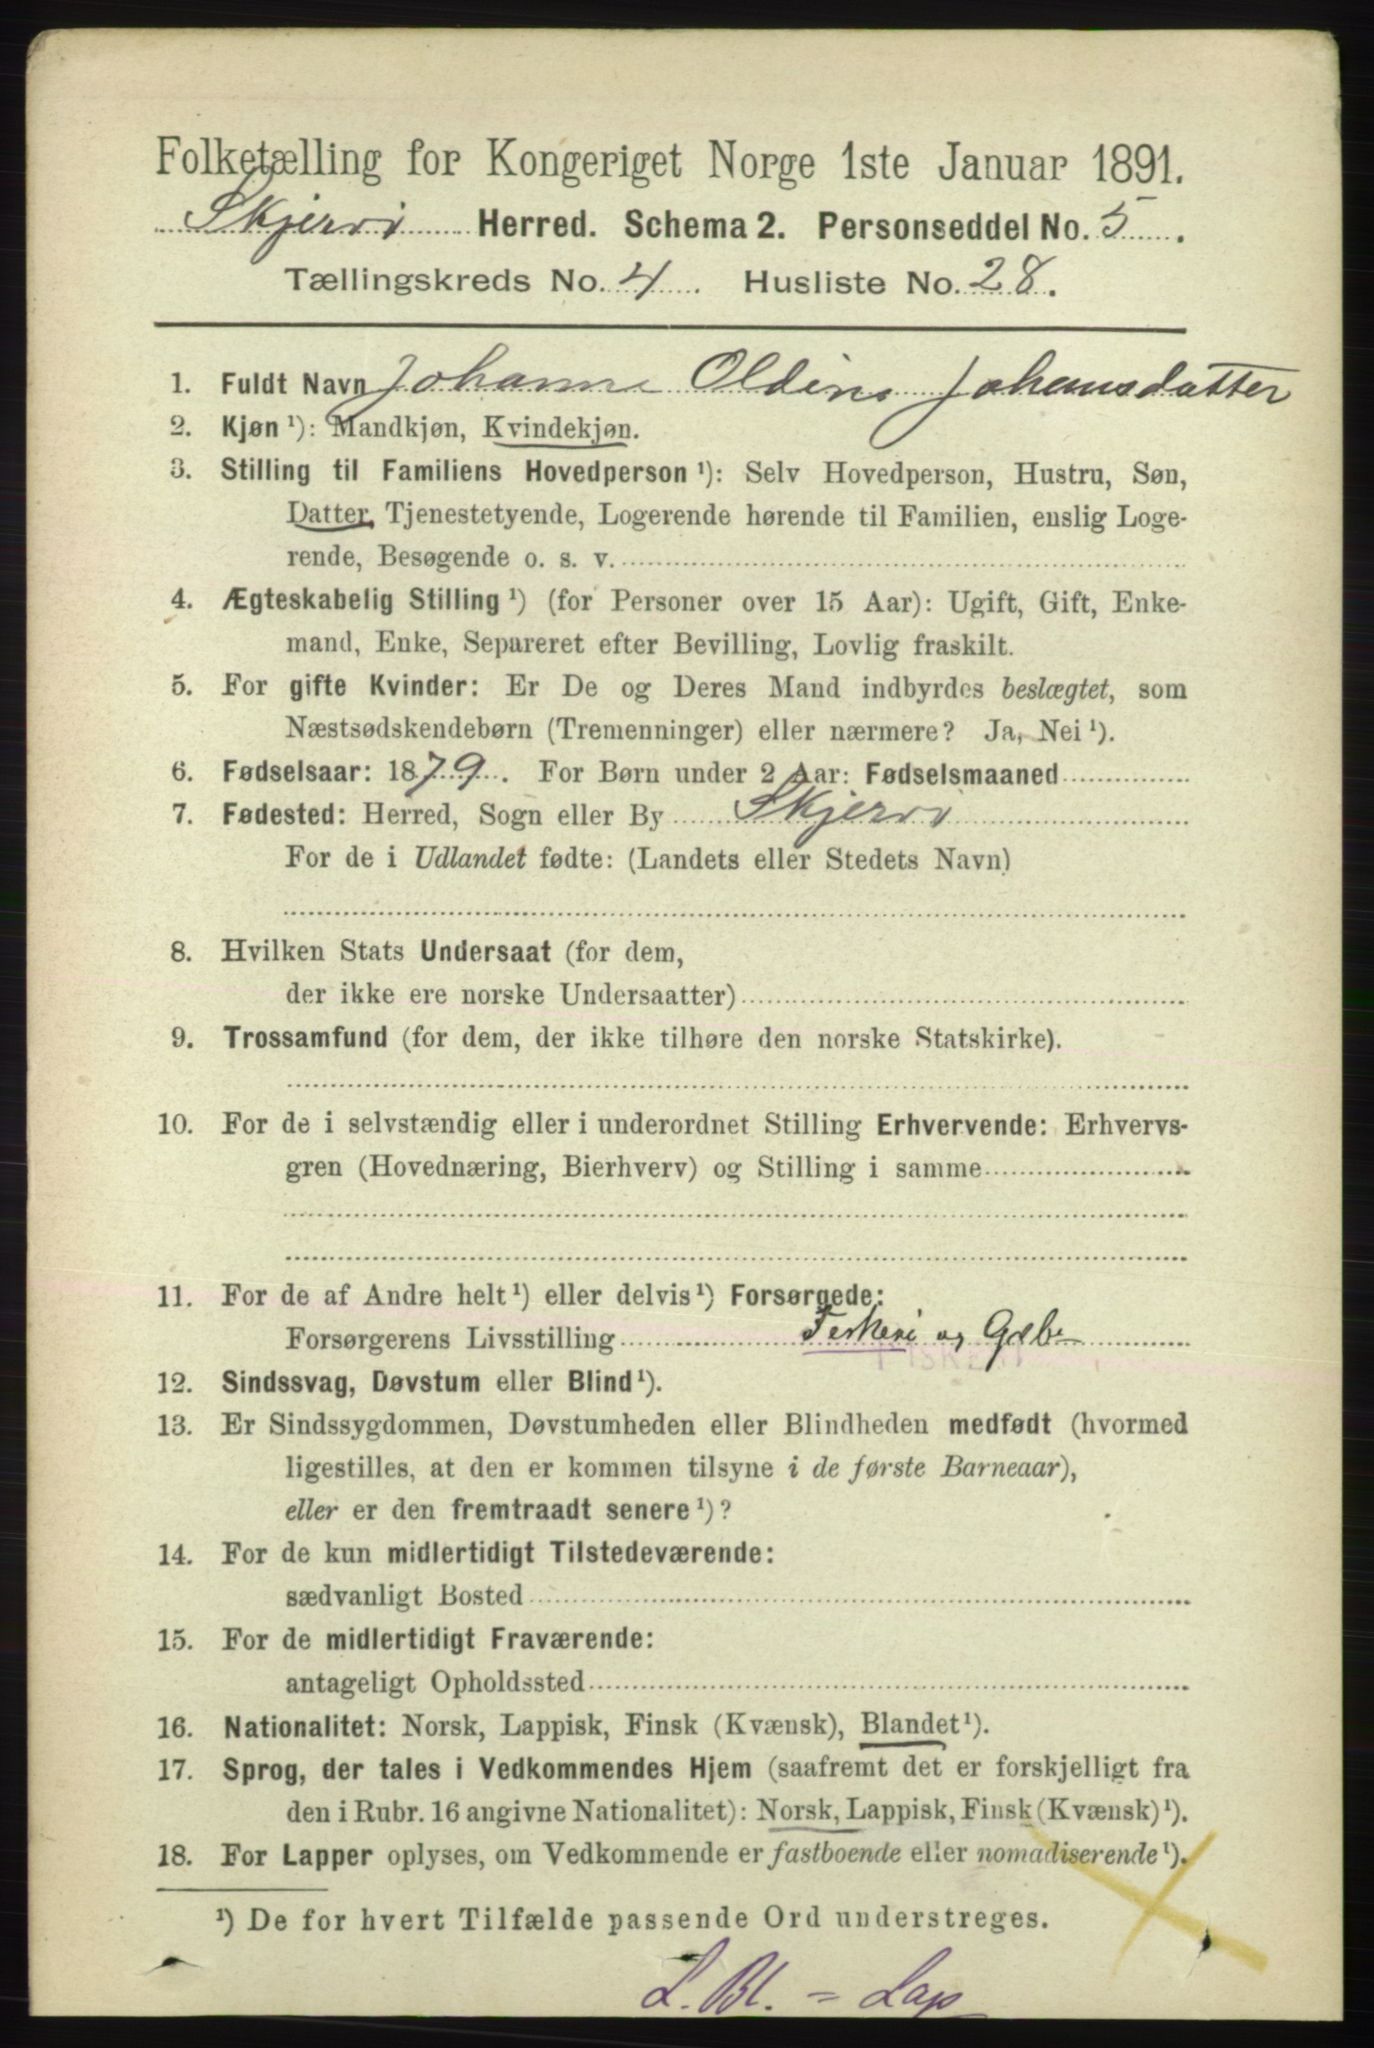 Folketælling for Kongeriget Norge 1ste Januar 1891.
Skjervø Herred. Schema 2. Personseddel No. 5.
Tællingskreds No. 4. Husliste No. 28.
1. Fuldt Navn Johanne Oldine Johansdatter
2. Kjøn ¹): Mandkjøn, Kvindekjøn.
3. Stilling til Familiens Hovedperson ¹): Selv Hovedperson, Hustru, Søn,
Datter, Tjenestetyende, Logerende hørende til Familien, enslig Loge-
rende, Besøgende o. s. v.
4. Ægteskabelig Stilling ¹) (for Personer over 15 Aar): Ugift, Gift, Enke-
mand, Enke, Separeret efter Bevilling, Lovlig fraskilt.
5. For gifte Kvinder: Er De og Deres Mand indbyrdes beslægtet, som
Næstsødskendebørn (Tremenninger) eller nærmere? Ja, Nei ¹).
6. Fødselsaar: 1879. For Børn under 2 Aar: Fødselsmaaned
7. Fødested: Herred, Sogn eller By Skjervø
For de i Udlandet fødte: (Landets eller Stedets Navn)
8. Hvilken Stats Undersaat (for dem,
der ikke ere norske Undersaatter)
9. Trossamfund (for dem, der ikke tilhøre den norske Statskirke).
10. For de i selvstændig eller i underordnet Stilling Erhvervende: Erhvervs-
gren (Hovednæring, Bierhverv) og Stilling i samme
11. For de af Andre helt ¹) eller delvis ¹) Forsørgede:
Forsørgerens Livsstilling Feskeri og
12. Sindssvag, Døvstum eller Blind ¹).
13. Er Sindssygdommen, Døvstumheden eller Blindheden medfødt (hvormed
ligestilles, at den er kommen tilsyne i de første Barneaar),
eller er den fremtraadt senere ¹)?
14. For de kun midlertidigt Tilstedeværende:
sædvanligt Bosted
15. For de midlertidigt Fraværende:
antageligt Opholdssted
16. Nationalitet: Norsk, Lappisk, Finsk (Kvænsk), Blandet ¹).
17. Sprog, der tales i Vedkommendes Hjem (saafremt det er forskjelligt fra
den i Rubr. 16 angivne Nationalitet): Norsk, Lappisk, Finsk (Kvænsk) ¹).
18. For Lapper oplyses, om Vedkommende er fastboende eller nomadiserende ¹).
¹) De for hvert Tilfælde passende Ord understreges.
L. Bl. = Lap